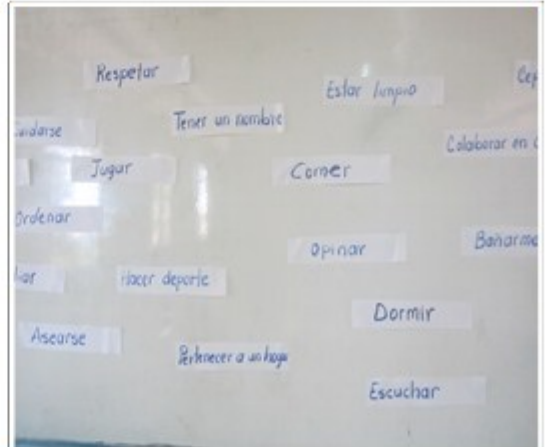 Respetar
Estar limpio
Cep
uidarse
Tener un nombre
Colaborar en
Jugar
Comer
Ordenar
Opinar
Bañarme
Hacer deporte
Dormir
Asearse
Pertenecer a un hogar
Escuchar